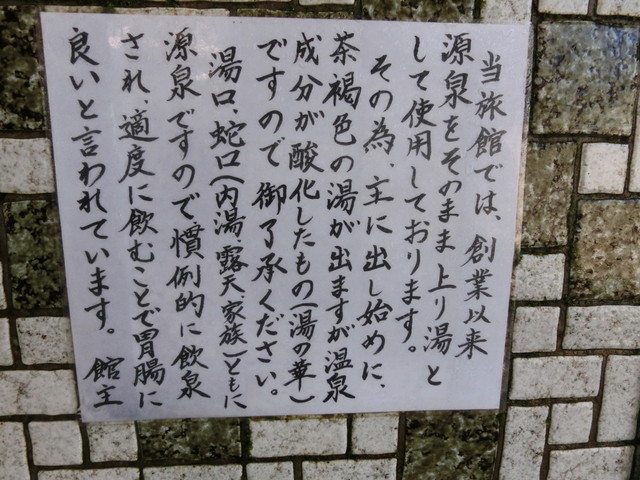 当旅館では、創業以来
源泉をそのまま上り湯と
して使用しております。
その為、主に出し始めに、
茶褐色の湯が出ますが温泉
成分が酸化したもの(湯の華)
ですので御了承ください。
湯口、蛇口(内湯、露天、家族)ともに
源泉ですので慣例的に飲泉
され、適度に飲むことで胃腸に
良いと言われています。 館主